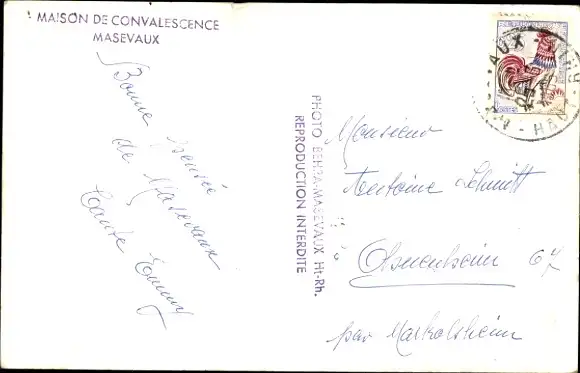 MAISON DE CONVALESCENCE
MASEVAUX
Bonne pensée
de Masevaux
Tante Emmy
PHOTO BEHRA-MASEVAUX Ht-Rh.
REPRODUCTION INTERDITE
AUX
HAUT
Monsieur
Antoine Schmitt
Ohnenheim 67
par Markolsheim